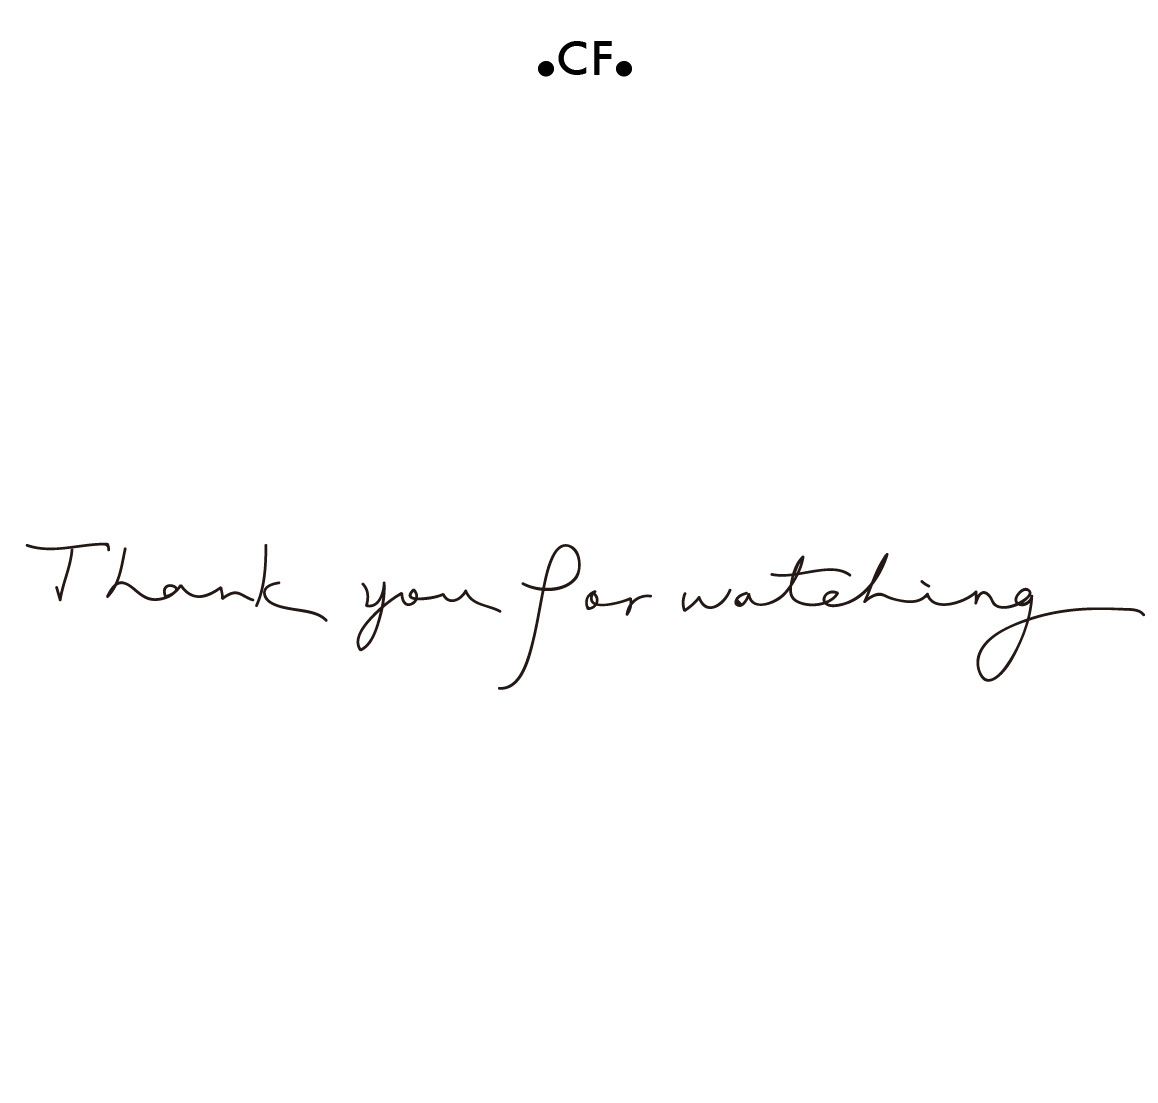 .CF.
Thank you for watching